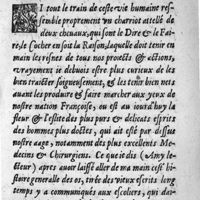 SI tout le train de ceste vie humaine res-
semble proprement un chariot attellé de
deux cheuaux, qui sont le Dire & le Fai-
re, le Cocher en soit la Raison, laquelle doit tenir en
main les resnes de tous noz proiects & actions,
vrayement ie debuois estre plus curieux de les
bien traicter soigneusement, & les tenir bien nets
auant les produire & faire marcher aux yeux de
nostre nation Françoise, ou est au iourd'huy la
fleur & l'eslite des plus purs & delicats esprits
des hommes plus doctes, qui ait esté par dessus
nostre aage, notamment des plus excellents Me-
decins & Chirurgiens. Ce que ie dis (Amy le-
cteur) apres auoir laissé aller de ma main cest' hi-
stoire generalle des os, tirée des vieux escrits long
temps y a communiqués aux escoliers, qui dai-